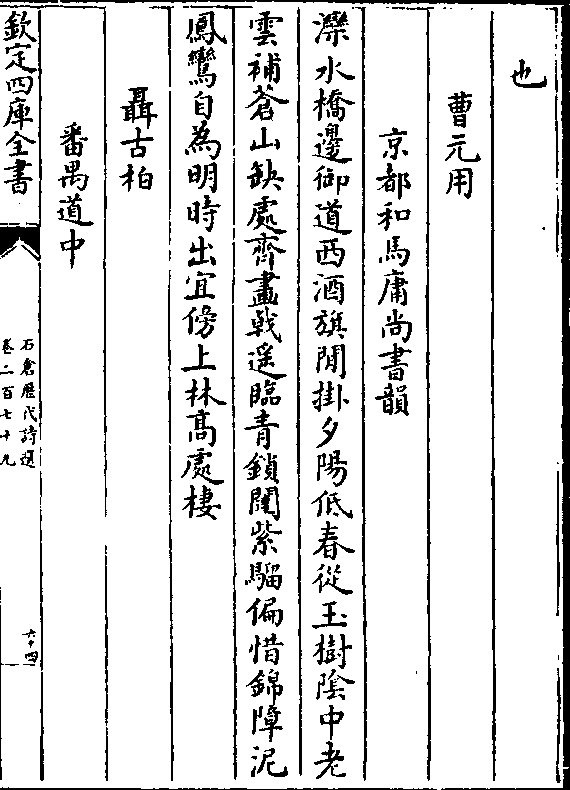 也
曹元用
京都和馬庸尚書韻
灤水橋邊御道西酒旗閒掛夕陽低春從玉樹陰中老
雲補蒼山缺處齊畫戟遥臨青鎖闥紫騮偏惜錦障泥
鳳鸞自為明時出宜傍上林髙處棲
聶古柏
番禺道中
欽定四庫全書
石倉歴代詩選
卷二百七十九
六十四